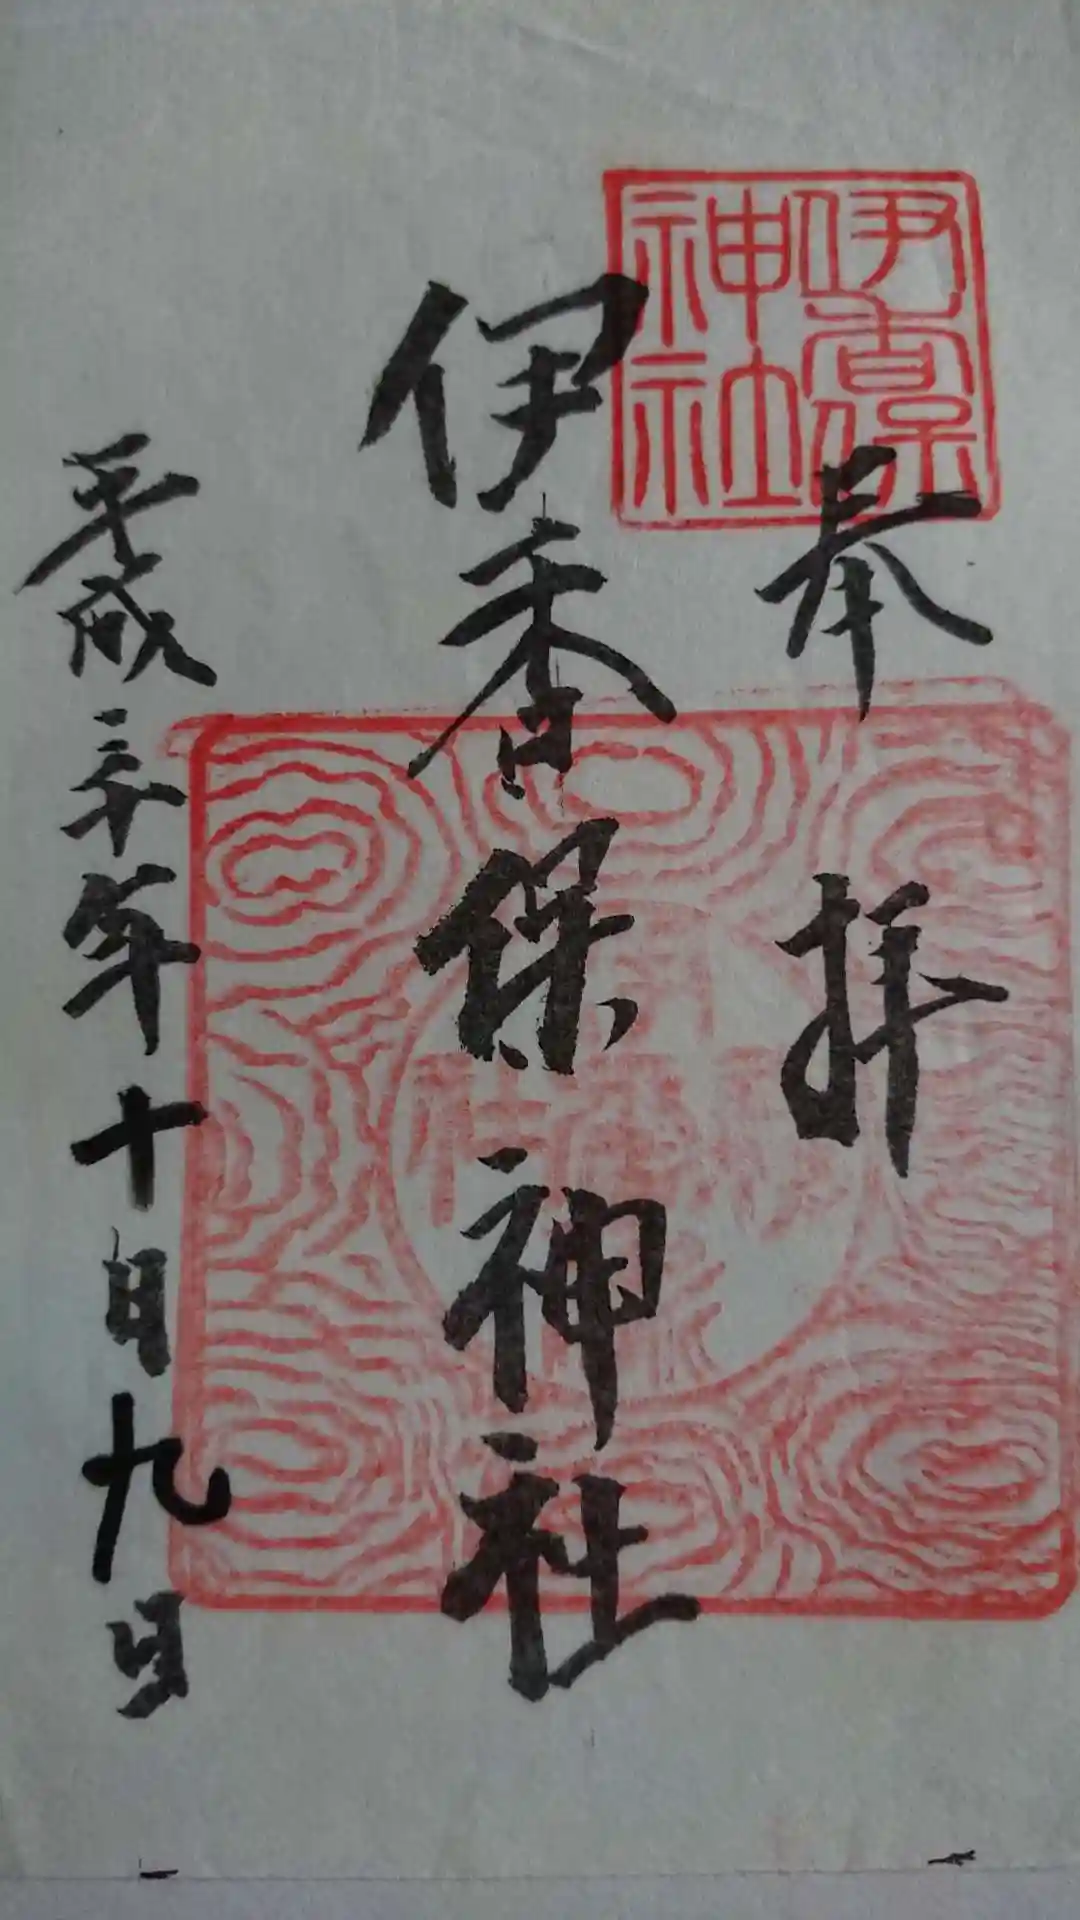 奉拝
伊香保
神社
伊香保神社
平成三十年十月九日